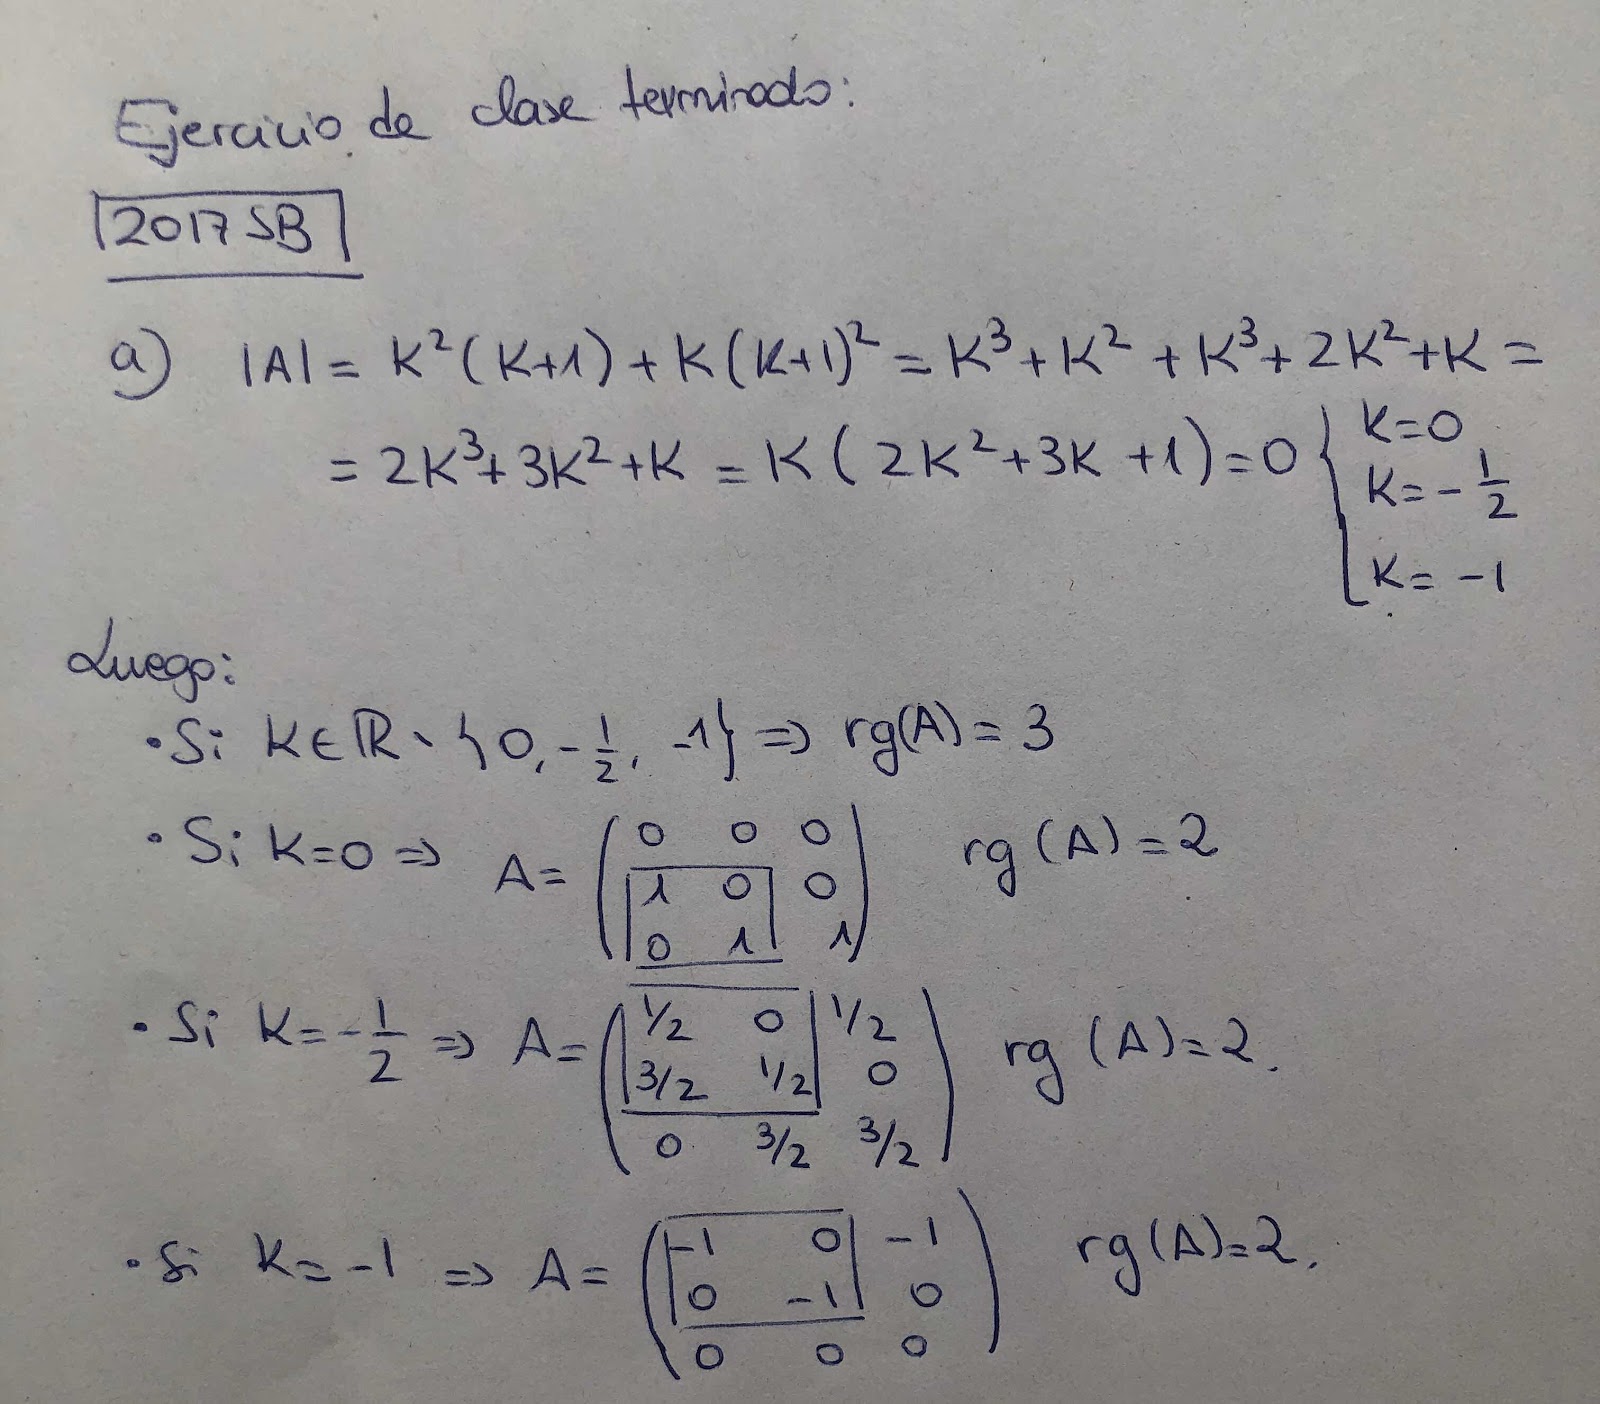 Ejercicio de clase terminado:
2017 SB
a) |A| = K²(K+1) + K(K+1)² = K³+K² + K³+2K²+K =
= 2K³+3K²+K = K(2K²+3K+1)=0 { K=0
K=-1/2
K=-1
Luego:
• Si K∈ℝ∖{0, -1/2, -1} ⇒ rg(A)=3
• Si K=0 ⇒ A= ( 0 0 0 rg(A)=2
1 0 0
0 1 1 )
• Si K=-1/2 ⇒ A= ( 1/2 0 1/2 rg(A)=2.
3/2 1/2 0
0 3/2 3/2 )
• Si K=-1 ⇒ A= ( -1 0 -1 rg(A)=2.
0 -1 0
0 0 0 )